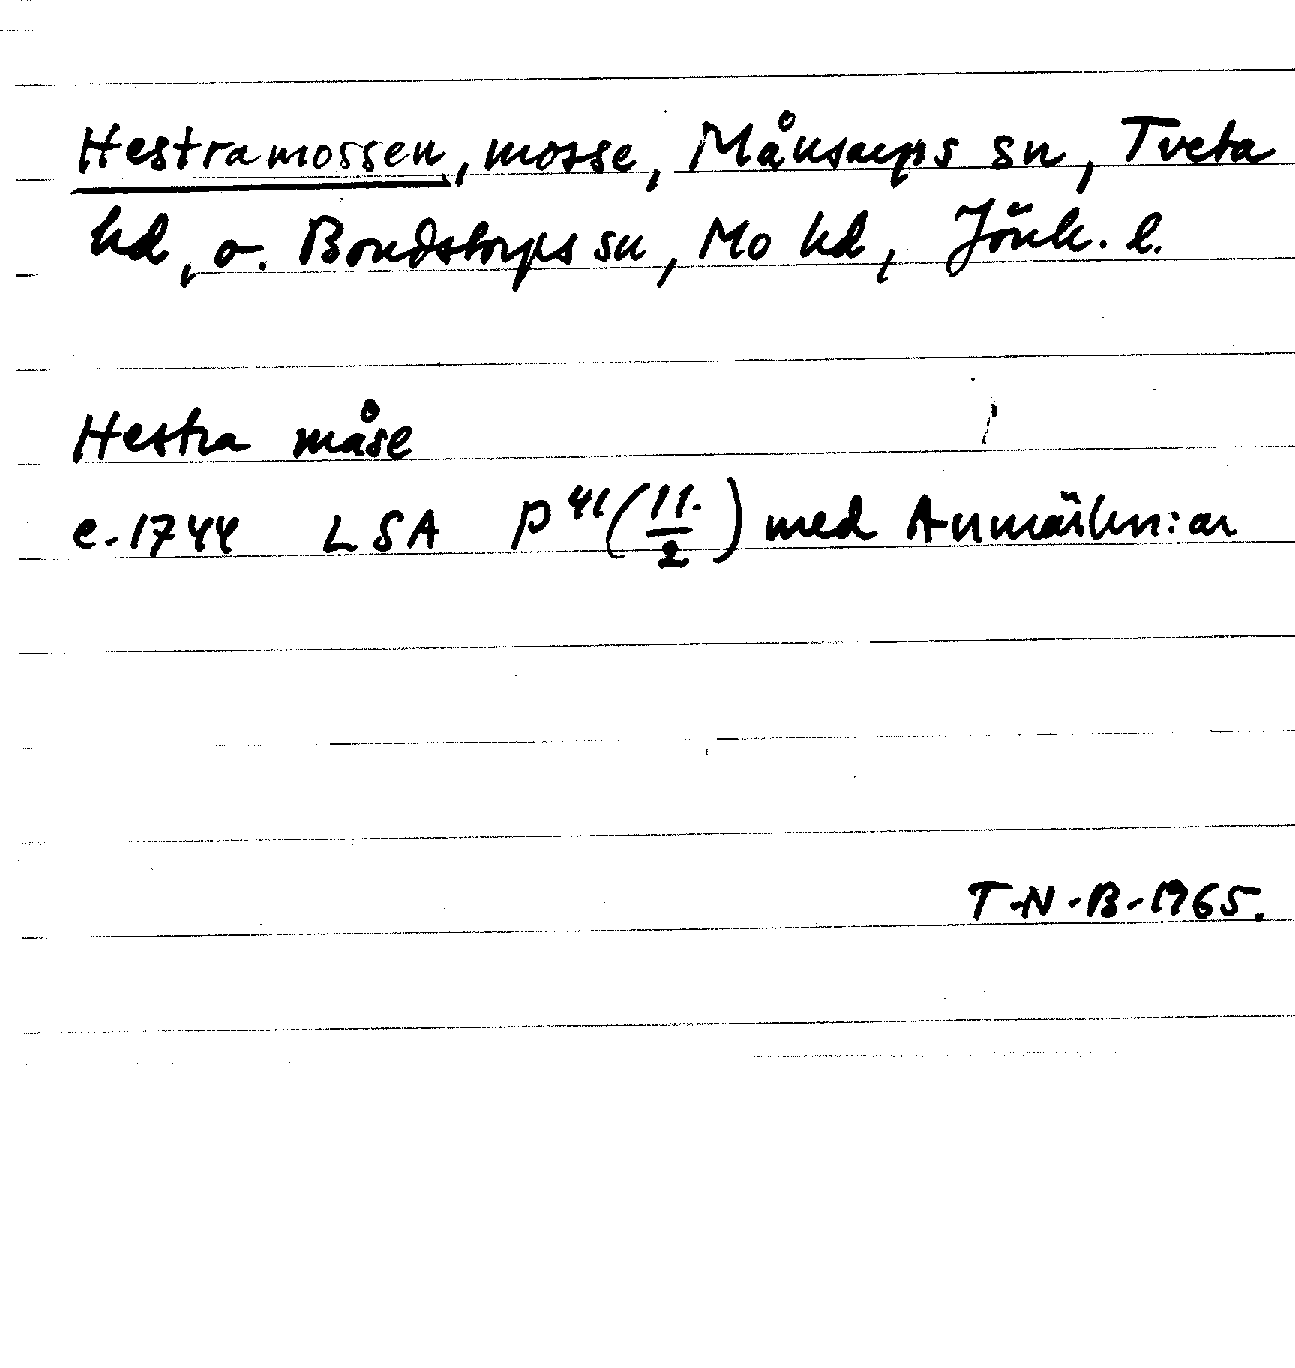 Hestramossen, mosse, Månsarps sn, Tveta
hd, o. Bondstorps sn, Mo hd, Jönk. l.
Hestra måse
e. 1744 LSA P 41 (11./2) med Anmärkn:ar
T-N-B-1965.